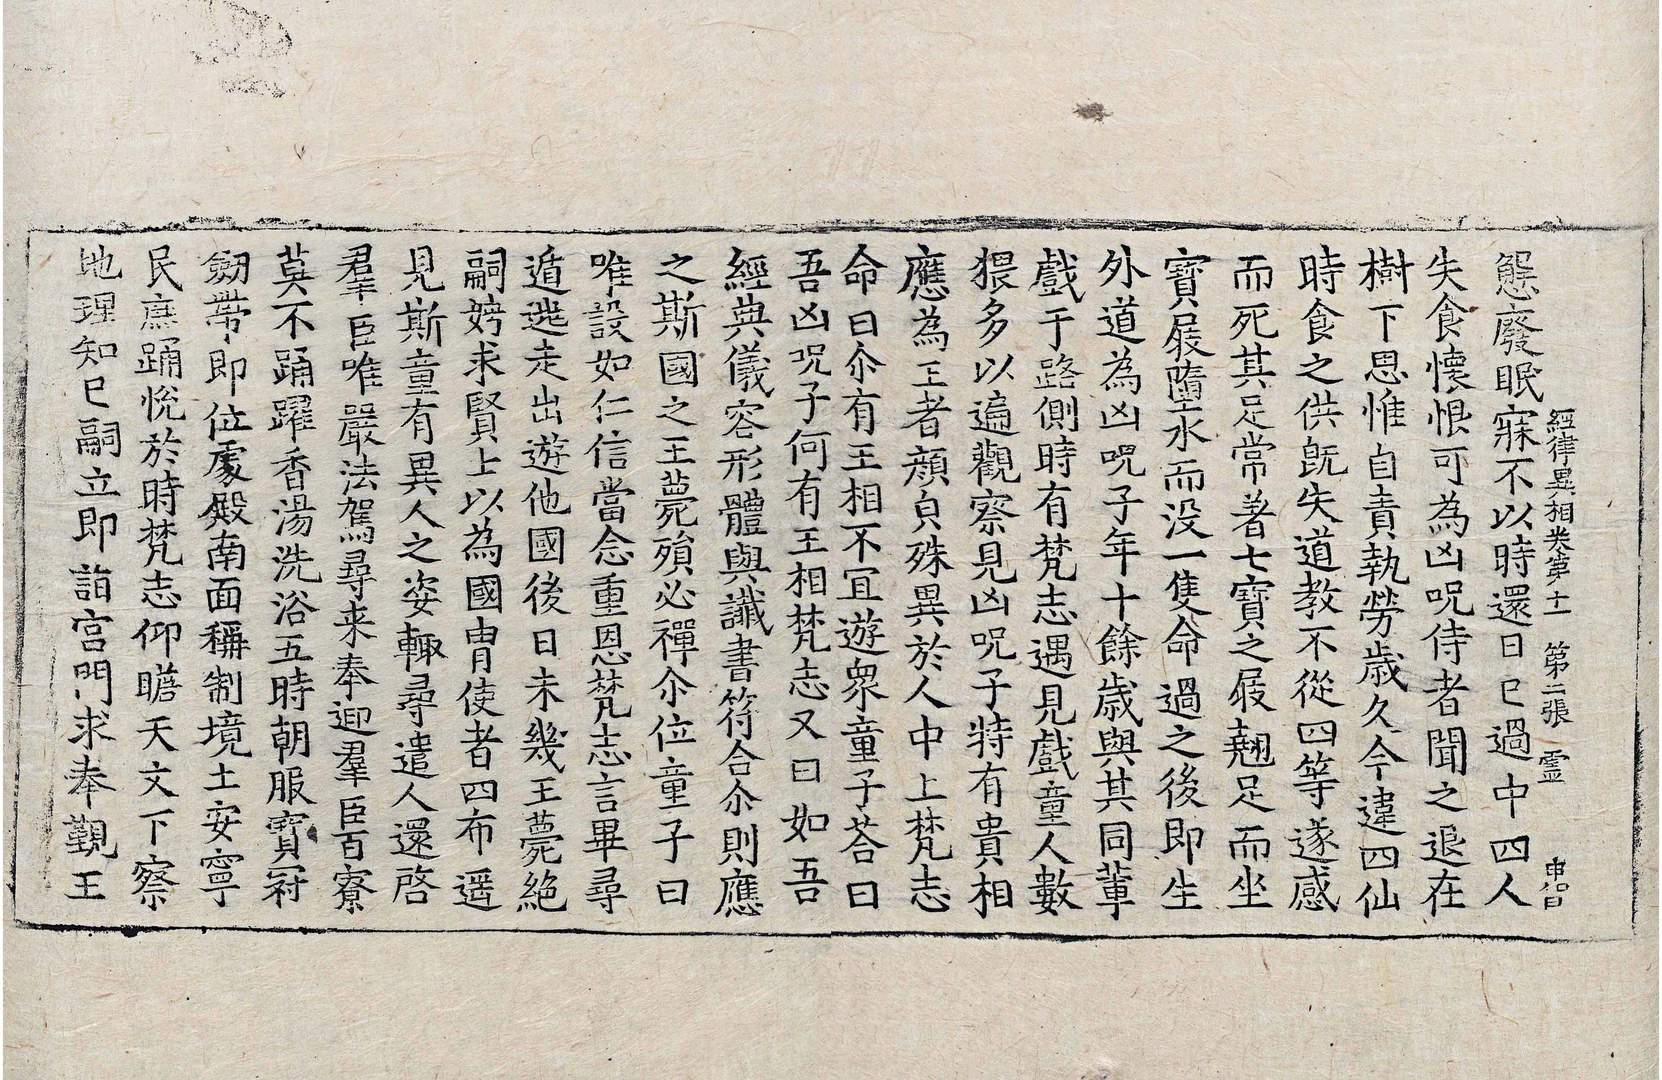 懈廢眠寐不以時還日已過中四人
經律異相卷第十一　第二張　霊
失食懷恨可為凶呪侍者聞之退在
樹下思惟自責執勞歲久今違四仙
時食之供既失道教不從四等遂感
而死其足常著七寶之屐翹足而坐
寶屐墮水而没一隻命過之後即生
外道為凶呪子年十餘歲與其同輩
戲于路側時有梵志遇見戲童人數
猥多以遍觀察見凶呪子特有貴相
應為王者顏皃殊異於人中上梵志
命曰尒有王相不宜遊衆童子荅曰
吾凶呪子何有王相梵志又曰如吾
經典儀容形體與讖書符合尒則應
之斯國之王薨殞必禪尒位童子曰
唯設如仁信當念重恩梵志言畢尋
遁逃走出遊他國後日未幾王薨絶
嗣娉求賢上以為國胄使者四布遥
見斯童有異人之姿輙尋遣人還啓
羣臣唯嚴法駕尋来奉迎羣臣百寮
莫不踊躍香湯洗浴五時朝服寶冠
劒帶即位處殿南面稱制境土安寧
民庶踊悅於時梵志仰瞻天文下察
地理知已嗣立即詣宮門求奉覲王